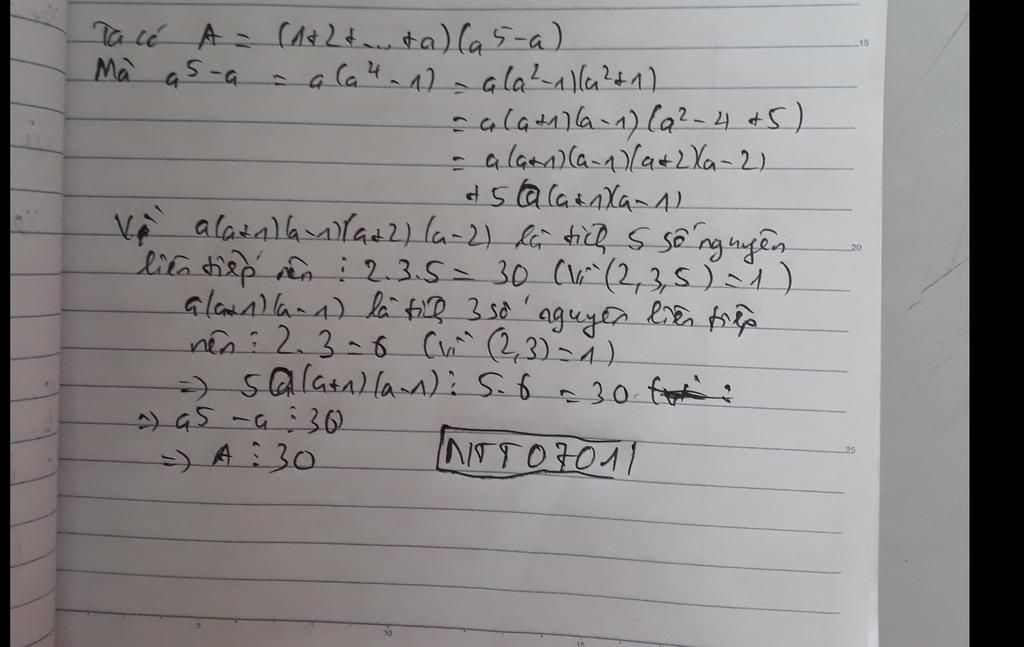 Ta có A = (1+2+...+a)(a^5-a)
Mà a^5-a = a(a^4-1) = a(a^2-1)(a^2+1)
= a(a+1)(a-1)(a^2-4+5)
= a(a+1)(a-1)(a+2)(a-2)
+5a(a+1)(a-1)
Vì a(a+1)(a-1)(a+2)(a-2) là tích 5 số nguyên
liên tiếp nên ⋮ 2.3.5 = 30 (vì (2,3,5)=1)
a(a+1)(a-1) là tích 3 số nguyên liên tiếp
nên ⋮ 2.3=6 (vì (2,3)=1)
=> 5a(a+1)(a-1) ⋮ 5.6 = 30.
=> a^5-a ⋮ 30
=> A ⋮ 30
NTT0701
15
20
25
5
10
15